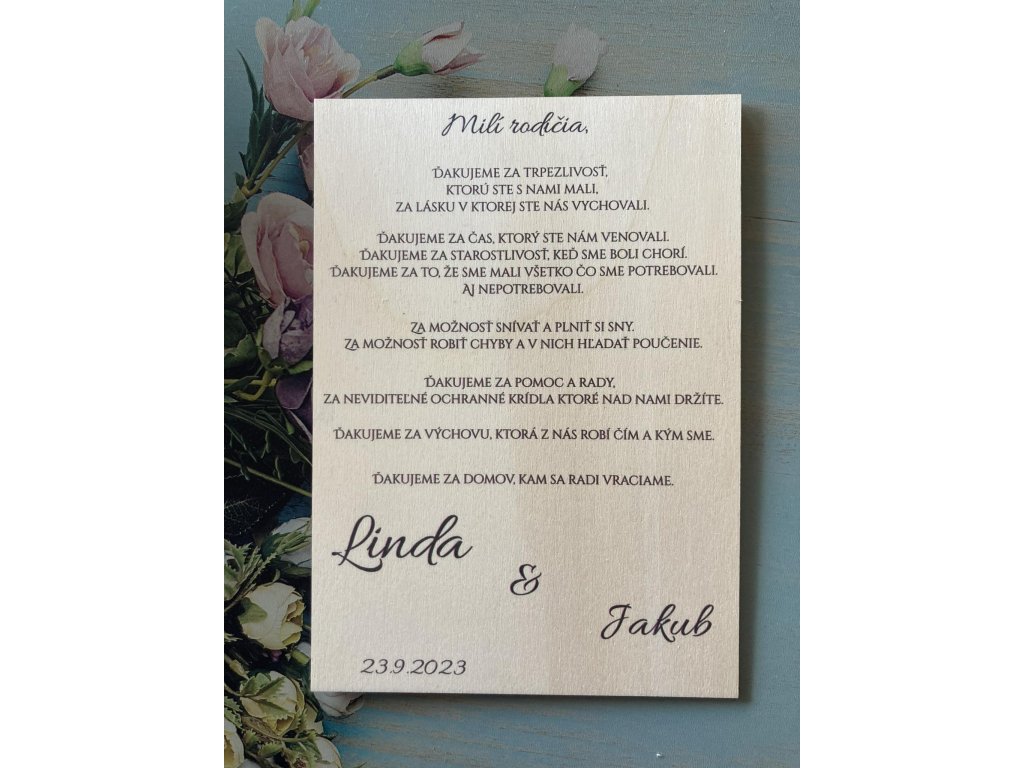 Milí rodičia,
Ďakujeme za trpezlivosť,
ktorú ste s nami mali,
za lásku v ktorej ste nás vychovali.
Ďakujeme za čas, ktorý ste nám venovali.
Ďakujeme za starostlivosť, keď sme boli chorí.
Ďakujeme za to, že sme mali všetko čo sme potrebovali.
Aj nepotrebovali.
Za možnosť snívať a plniť si sny.
Za možnosť robiť chyby a v nich hľadať poučenie.
Ďakujeme za pomoc a rady,
za neviditeľné ochranné krídla ktoré nad nami držíte.
Ďakujeme za výchovu, ktorá z nás robí čím a kým sme.
Ďakujeme za domov, kam sa radi vraciame.
Linda
&
Jakub
23.9.2023